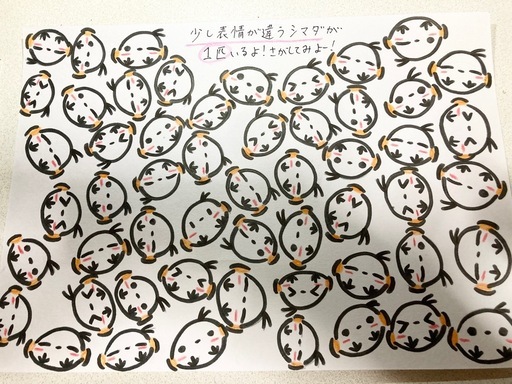 少し表情が違うシマダが
1匹いるよ!さがしてみよー!